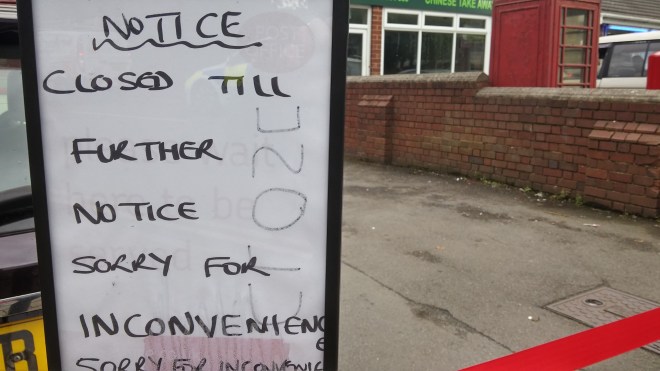 NOTICE
CLOSED TILL
FURTHER
NOTICE
SORRY FOR
INCONVENIENCE
SORRY FOR INCONVENIENCE
CHINESE TAKE AWAY